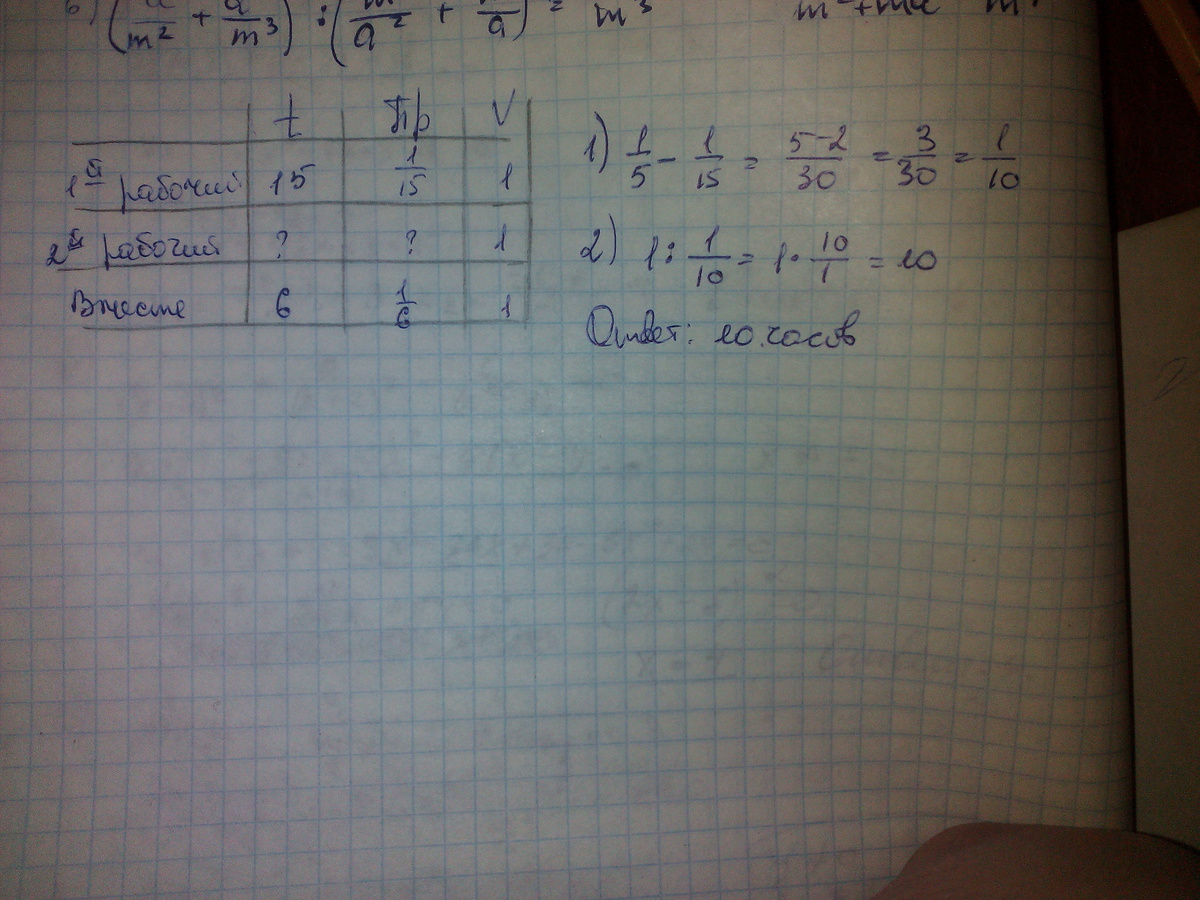 б) (a/m² + a/m³) : (m/a² + /a) = m³ m²+ma m
t Пр V
1й рабочий 15 1/15 1
2й рабочий ? ? 1
Вместе 6 1/6 1
1) 1/5 - 1/15 = 5-2/30 = 3/30 = 1/10
2) 1 : 1/10 = 1 · 10/1 = 10
Ответ: 10 часов